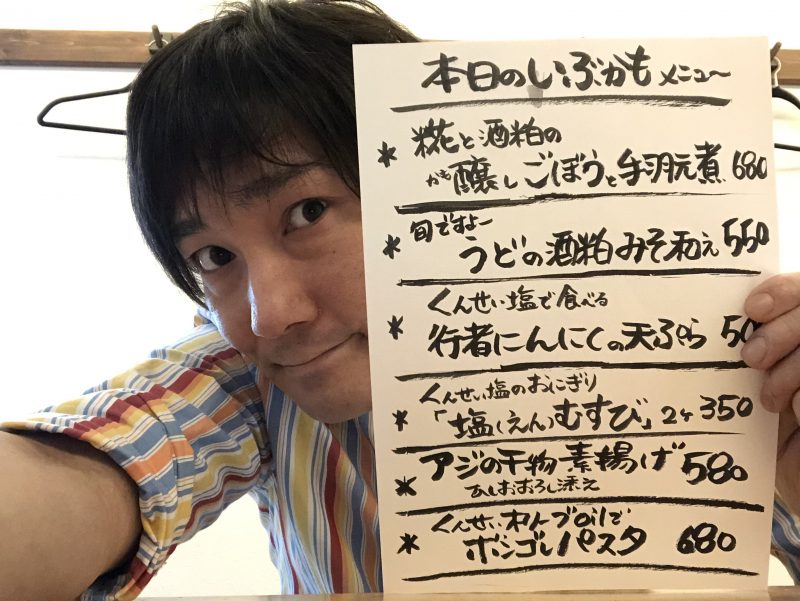 本日のいぶかもメニュー
* 糀と酒粕の
かも醸しごぼうと手羽元煮 680
* 旬ですよー
うどの酒粕みそ和え 550
くんせい塩で食べる
* 行者にんにくの天ぷら 50
くんせい塩のおにぎり
* 「塩(えん)むすび」2ヶ 350
* アジの干物素揚げ 580
おろし添え
くんせいオリーブoilで
* ボンゴレパスタ 680